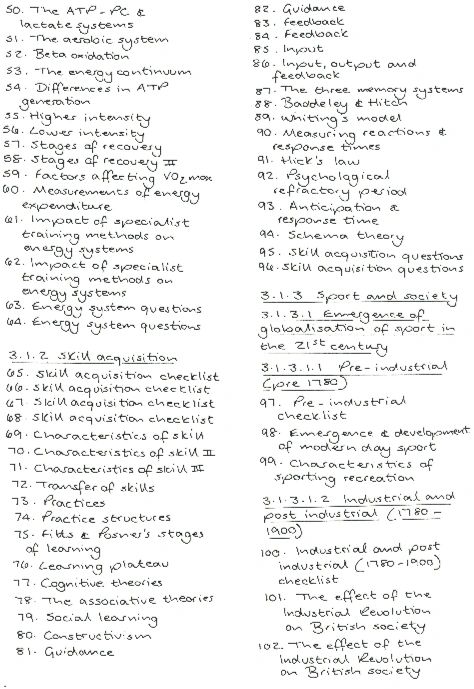 50. The ATP-PC &
lactate systems
51. The aerobic system
52. Beta oxidation
53. The energy continuum
54. Differences in ATP
generation
55. Higher intensity
56. Lower intensity
57. Stages of recovery
58. Stages of recovery II
59. Factors affecting VO2 max
60. Measurements of energy
expenditure
61. Impact of specialist
training methods on
energy systems
62. Impact of specialist
training methods on
energy systems
63. Energy system questions
64. Energy system questions
3.1.2 Skill acquisition
65. Skill acquisition checklist
66. Skill acquisition checklist
67. Skill acquisition checklist
68. Skill acquisition checklist
69. Characteristics of skill
70. Characteristics of skill II
71. Characteristics of skill III
72. Transfer of skills
73. Practices
74. Practice structures
75. Fitts & Posner's stages
of learning
76. Learning plateau
77. Cognitive theories
78. The associative theories
79. Social learning
80. Constructivism
81. Guidance
82. Guidance
83. Feedback
84. Feedback
85. Input
86. Input, output and
feedback
87. The three memory systems
88. Baddeley & Hitch
89. Whiting's model
90. Measuring reactions &
response times
91. Hick's law
92. Psychological
refractory period
93. Anticipation &
response time
94. Schema theory
95. Skill acquisition questions
96. Skill acquisition questions
3.1.3 Sport and society
3.1.3.1 Emergence of
globalisation of sport in
the 21st century
3.1.3.1.1 Pre-industrial
(pre 1780)
97. Pre-industrial
checklist
98. Emergence & development
of modern day sport
99. Characteristics of
sporting recreation
3.1.3.1.2 Industrial and
post industrial (1780-
1900)
100. Industrial and post
industrial (1780-1900)
checklist
101. The effect of the
Industrial Revolution
on British society
102. The effect of the
Industrial Revolution
on British society